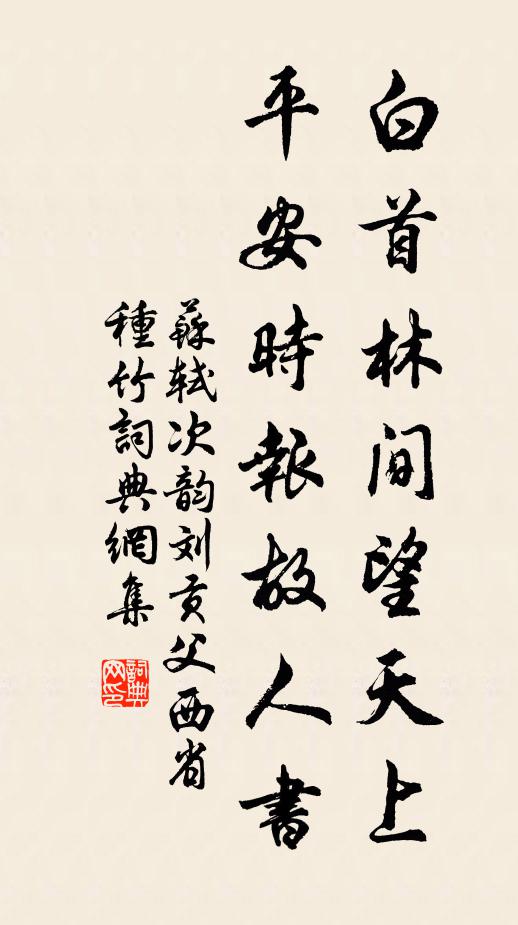 白首林间望天上
平安時報故人書
蘇轼次韵刘贡父西省
種竹詞典網集
詞典
网印